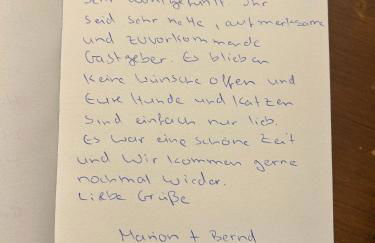 sehr wohlgefühlt. Ihr
seid sehr nette, aufmerksame
und zuvorkommende
Gastgeber. Es blieben
keine Wünsche offen und
Eure Hunde und Katzen
sind einfach nur lieb.
Es war eine schöne Zeit
und wir kommen gerne
nochmal wieder.
Liebe Grüße
Marion + Bernd